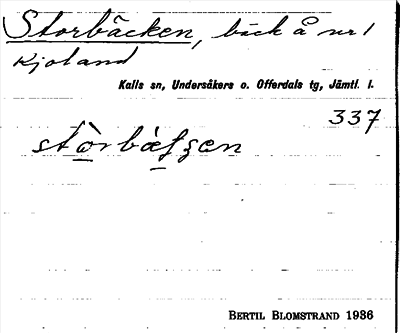 Storbäcken, bäck å nr 1
Kjoland
Kalls sn, Undersåkers o. Offerdals tg, Jämtl. l.
337
stòrbáʃʒen
BERTIL BLOMSTRAND 1936